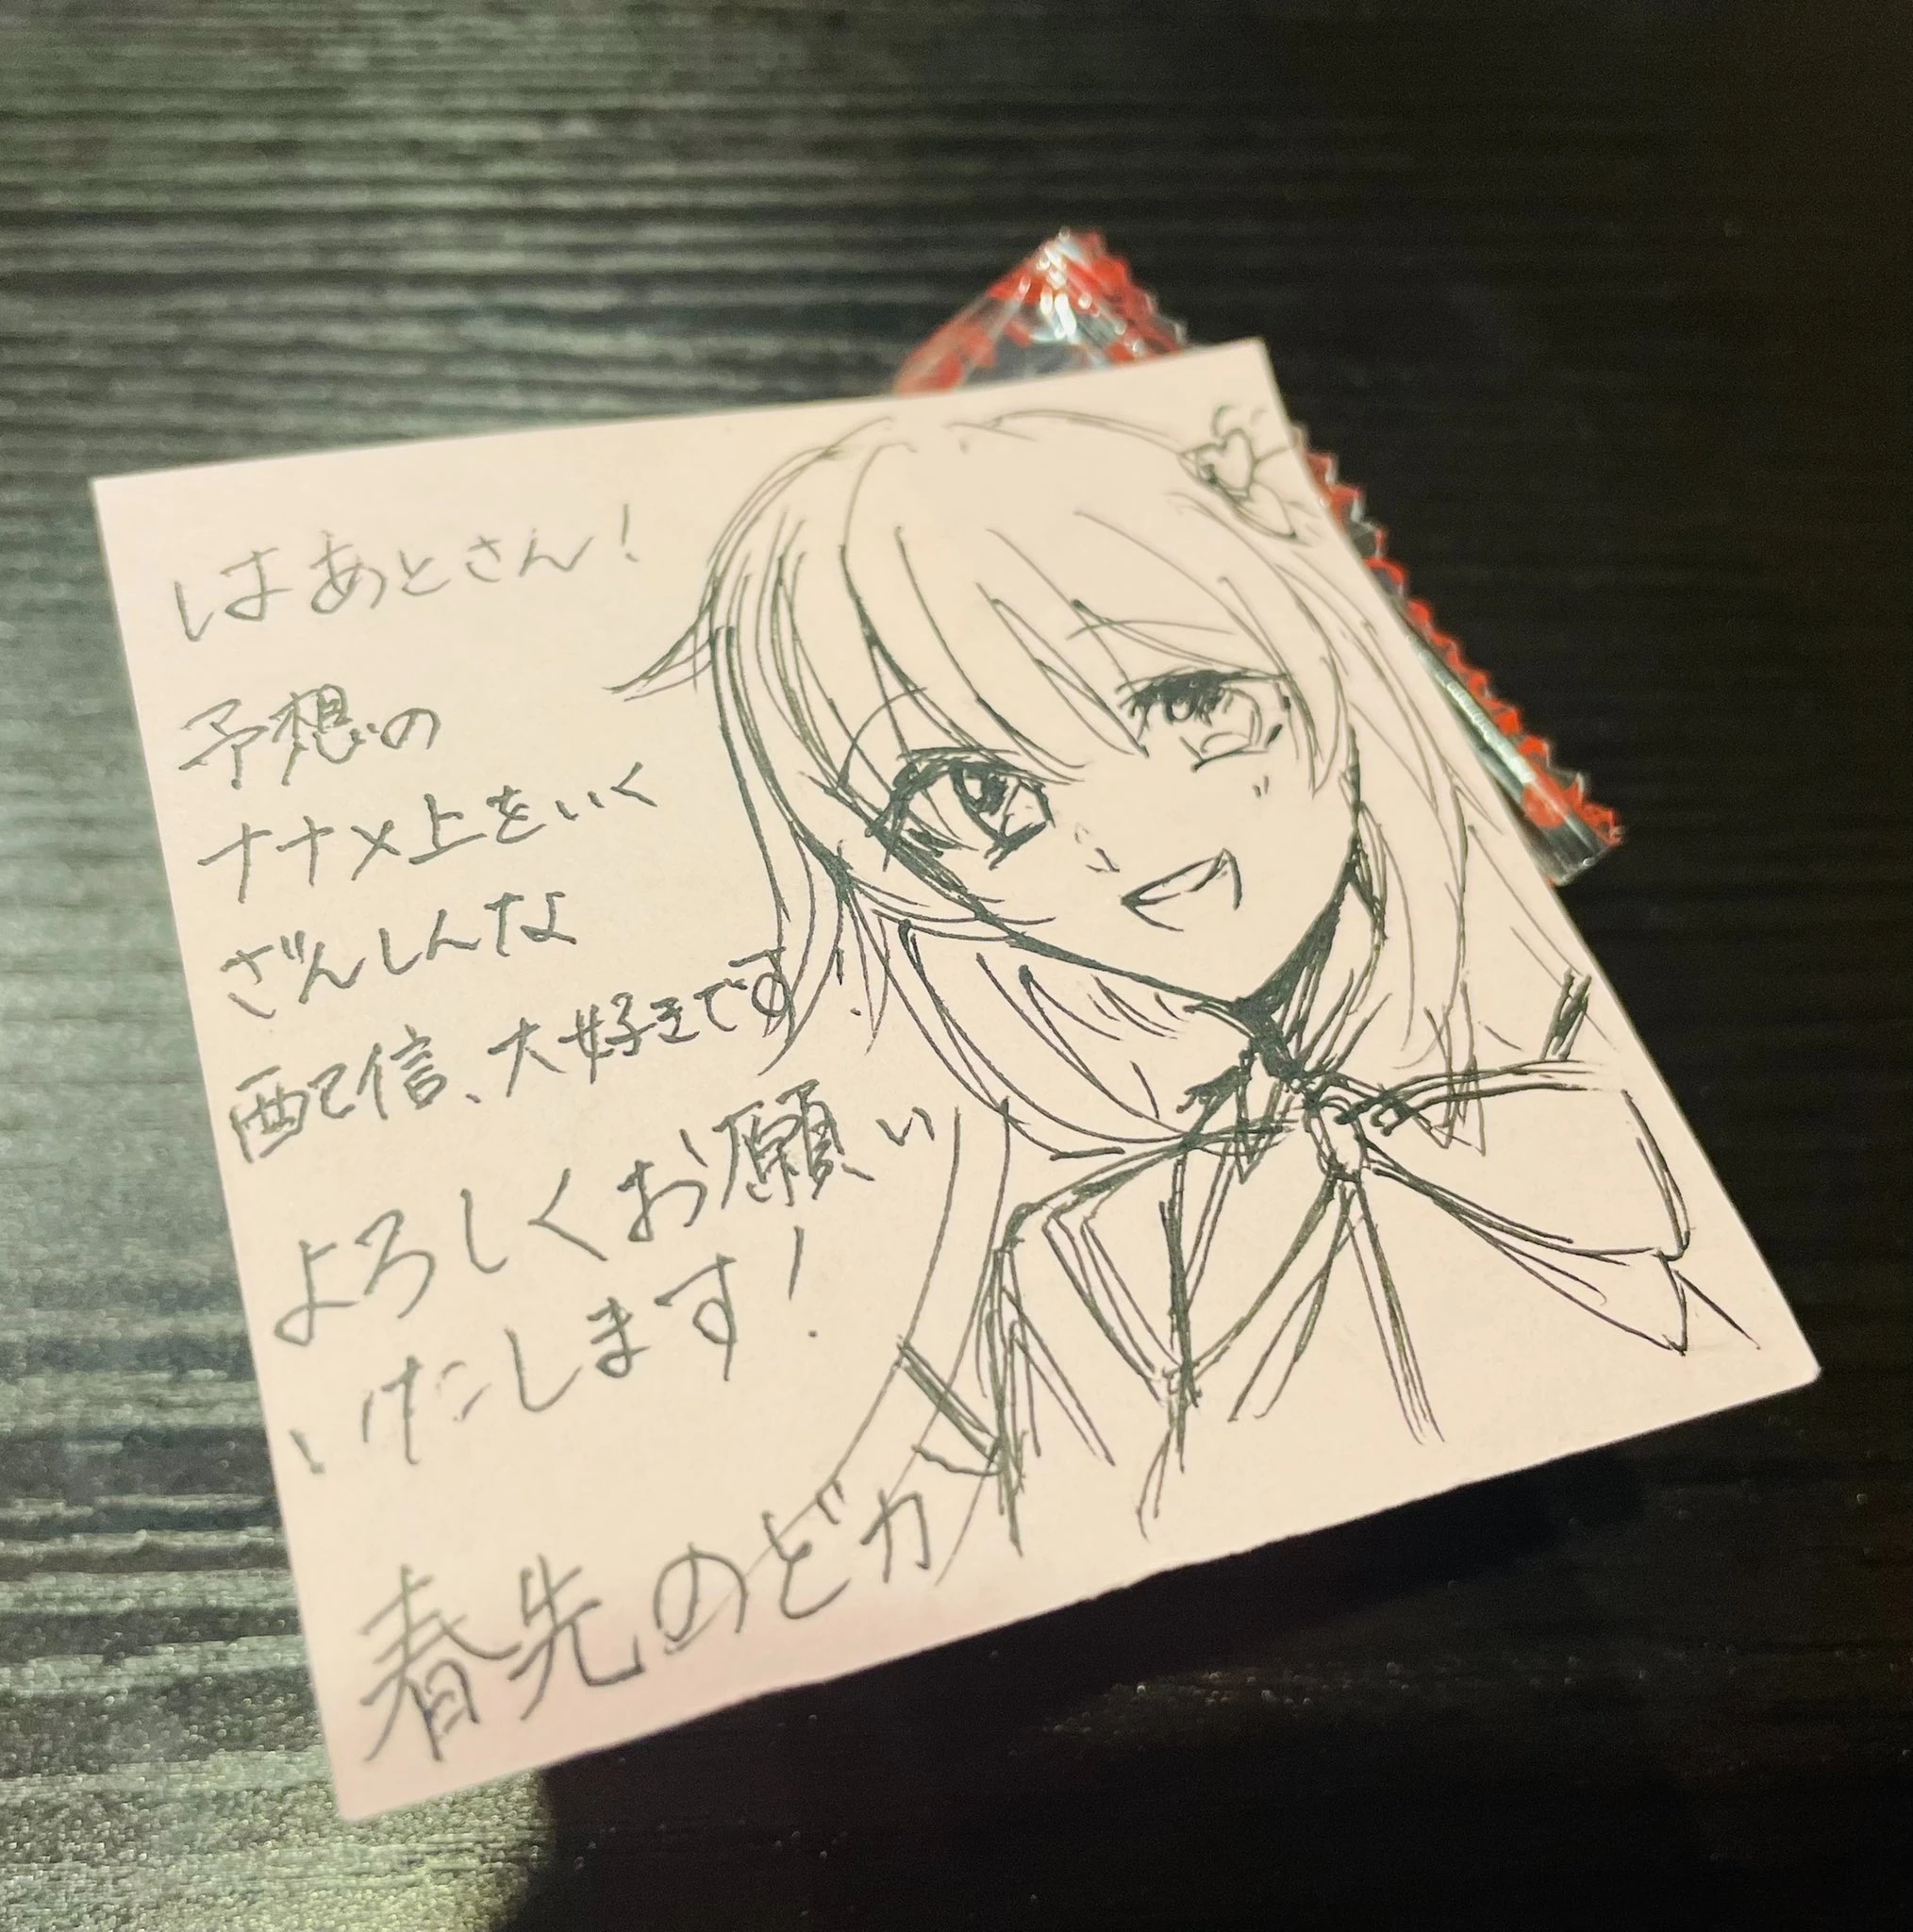 はあとさん!
予想の
ナナメ上をいく
ざんしんな
配信、大好きです.
よろしくお願い
いたします!
春先のどか